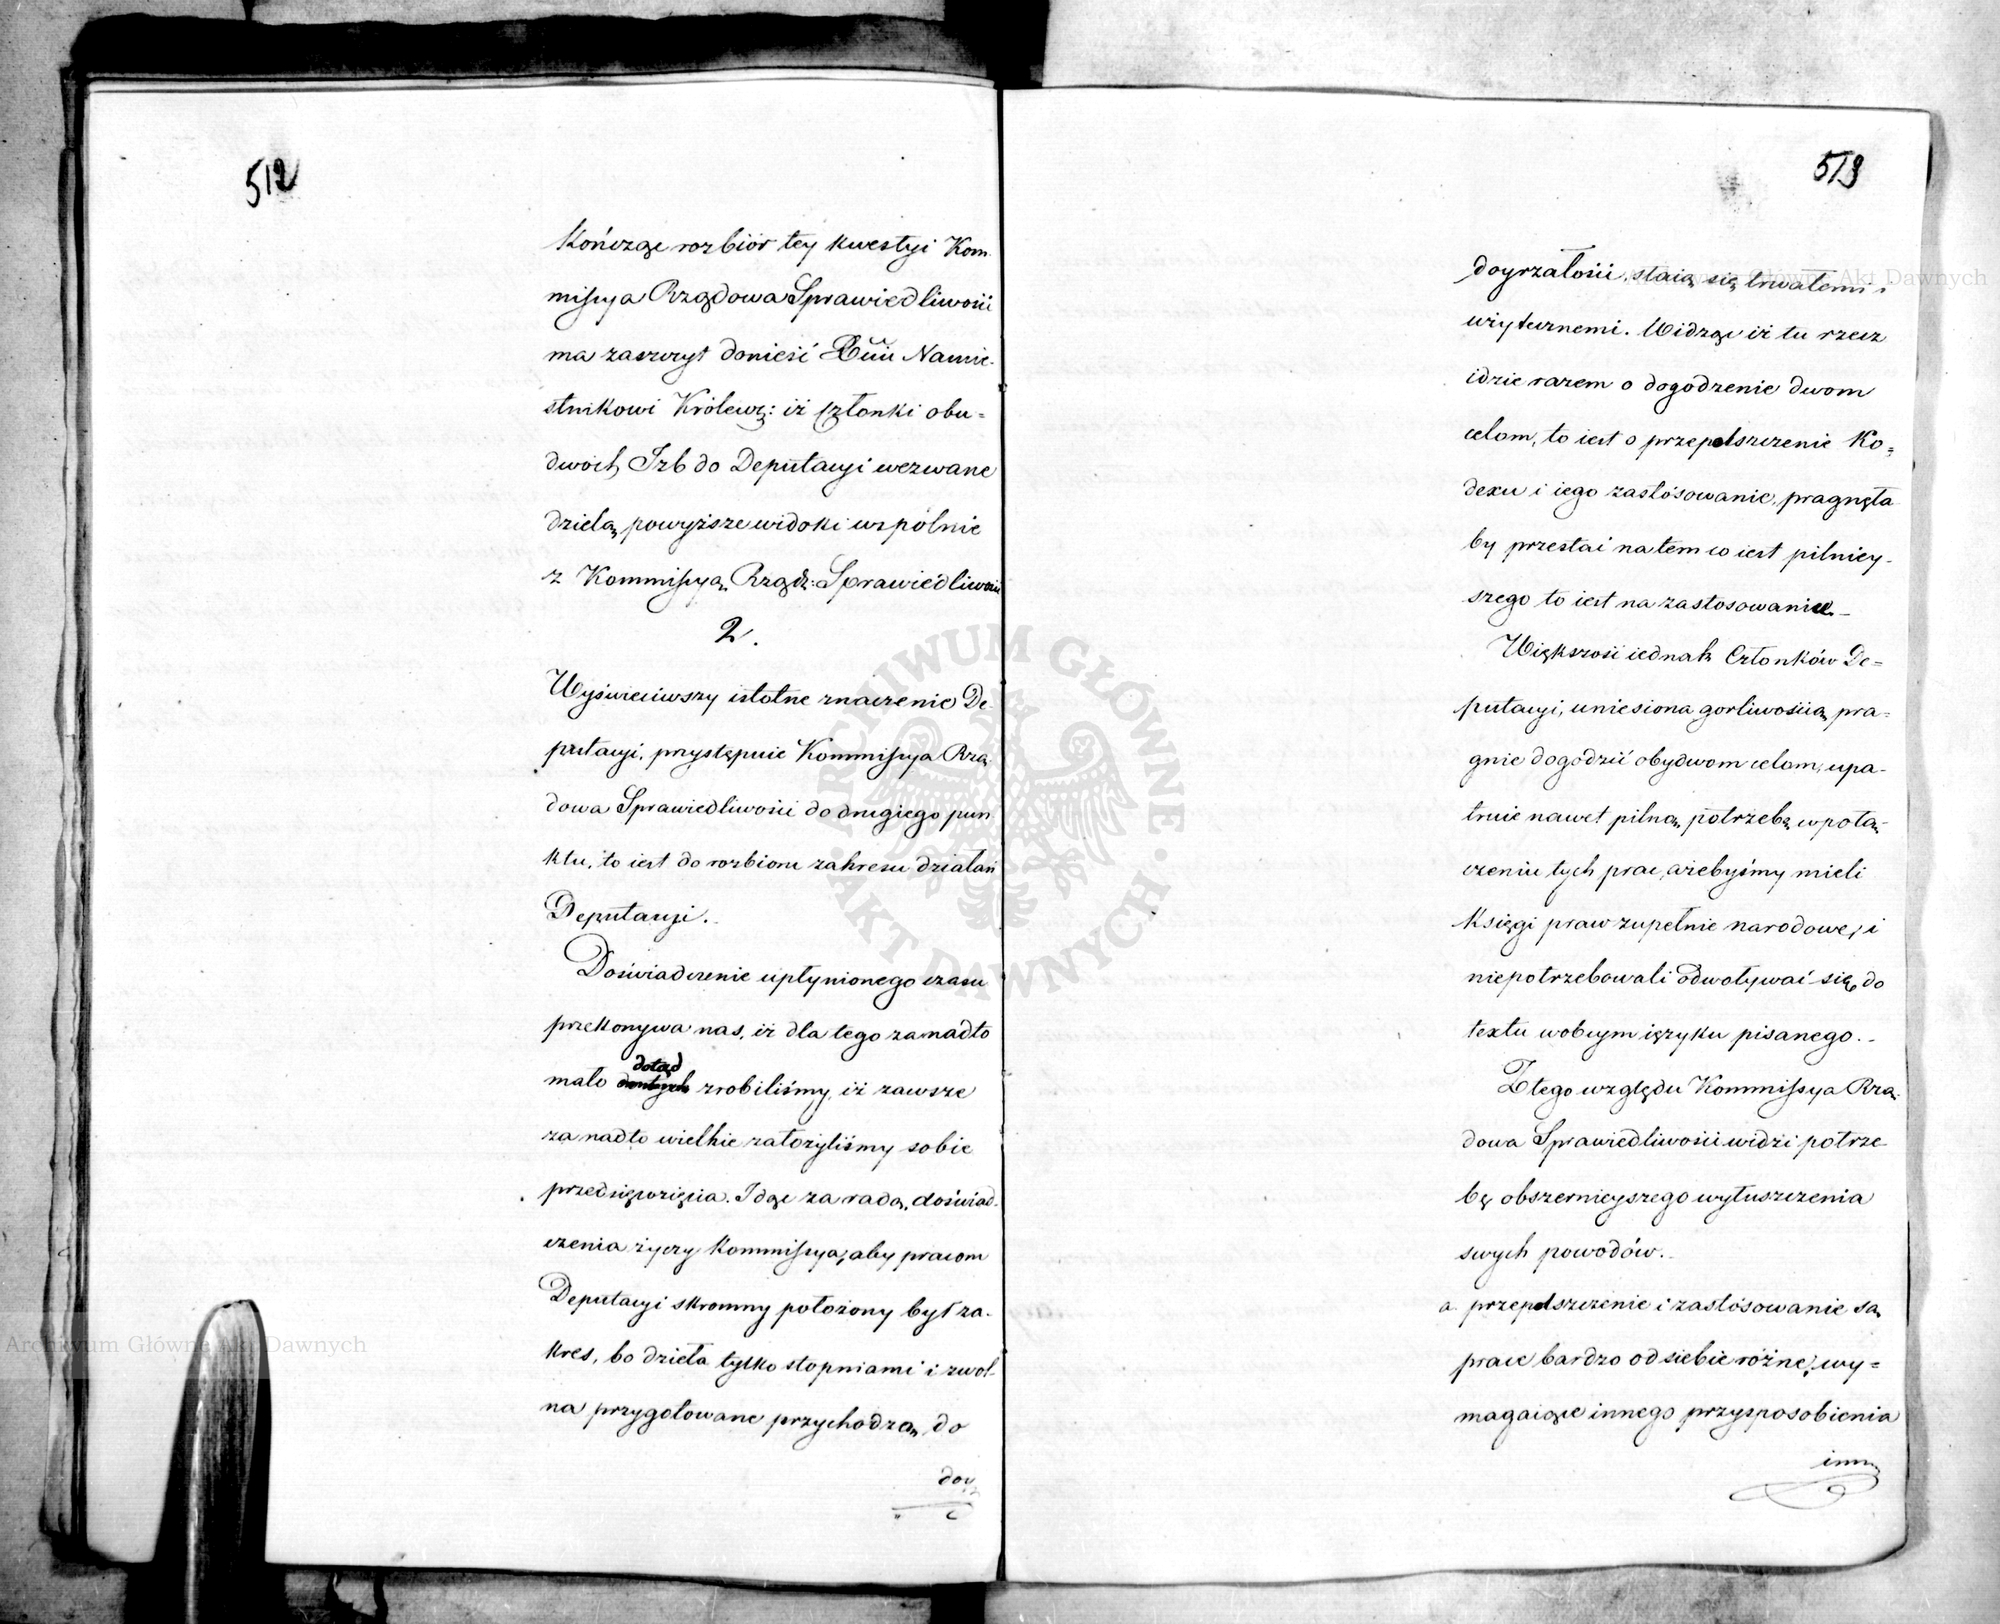 512
Kończąc rozbiór tey kwestyi Kom
missya Rządowa Sprawiedliwości
ma zaszczyt donieść Xciu Namie-
stnikowi Królewsk: iż Członki obu=
dwóch Izb do Deputacyi wezwane
dzielą powyższe widoki wspólnie
z Kommissyą Rządz: Sprawiedliwości
2.
Wyświeciwszy istotne znaczenie De
putacyi, przystępuie Kommissya Rzą
dowa Sprawiedliwości do drugiego pun
ktu, to iest do rozbioru zakresu działań
Deputacyi.
Doświadczenie upłynionego czasu
przekonywa nas, iż dla tego zanadto
dotąd
mało zrobiliśmy, iż zawsze
za nadto wielkie założyliśmy sobie
przedsięwzięcia. Idąc za radą doświad-
czenia życzy Kommissya, aby pracom
Deputacyi skromny położony był za-
kres, bo dzieła tylko stopniami i zwol-
na przygotowane przychodzą do
doy
513
doyrzałości, staią się trwałemi i
użytecznemi. Widząc iż tu rzecz
idzie razem o dogodzenie dwom
celom, to iest o przepolszczenie Ko=
dexu i iego zastósowanie, pragnęła
by przestać na tem co iest pilniey-
szego to iest na zastosowaniu.
Większość iednak Członków De=
putacyi, uniesiona gorliwością pra=
gnie dogodzić obydwom celom, upa-
truie nawet pilną potrzebę w połą-
czeniu tych prac, ażebyśmy mieli
Księgi praw zupełnie narodowe, i
niepotrzebowali odwoływać się do
textu w obcym ięzyku pisanego.
Z tego względu Kommissya Rzą-
dowa Sprawiedliwości widzi potrze-
bę obszernieyszego wyłuszczenia
swych powodów.
a. przepolszczenie i zastósowanie są
prace bardzo od siebie różne, wy=
magaiące innego przysposobienia
inn
Archiwum Główne Akt Dawnych
Archiwum Główne Akt Dawnych
ARCHIWUM GŁÓWNE · AKT DAWNYCH ·